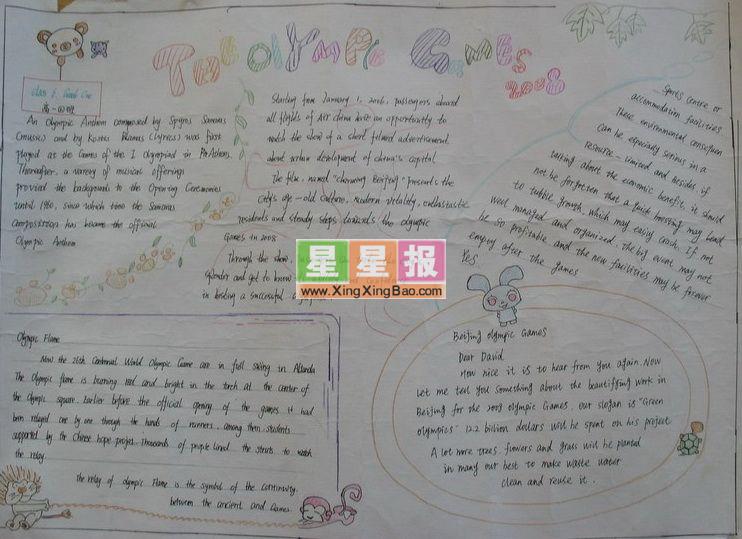 THE OLYMPIC GAMES
2008
Class 1, Grade One
高一四班
An Olympic Anthem composed by Spyros Samaras
(music) and by Kostis Palamas (lyrics) was first
played at the Games of the I Olympiad in Athens.
Thereafter, a variety of musical offerings
provied the backgrounds to the Opening Ceremonies
until 1960, since which time the Samaras
composition has become the official
Olympic Anthem
Starting from January 1, 2006, passengers aboard
all flights of Air china have an opportunity to
watch the show of a short filmed advertisement
about urban development of china's capital
The film, named "charming Beijing" presents the
city's age-old culture, modern vitality, enthusiastic
residents and steady steps towards the olympic
Games in 2008
Through the show,
splendor and get to know
in hosting a successful
Sports Centre or
accommodation facilities
These environmental
can be especially serious in a
resource-limited and besides if
talking about the economic benefits, it should
not be forgotten that a quick investing may lead
to bubble growth, which may easily crash. If not
well managed and organized, the big event may not
be so profitable and the new facilities may be forever
empty after the games
Yes
星星报
www.XingXingBao.com
Olympic Flame
Now the 26th Centennial World Olympic Game are in full swing in Atlanta
The Olympic flame is burning red and bright in the torch at the center of
the Olympic square. Earlier before the official opening of the games it had
been relayed one by one through the hands of runners, among them students
supported by the Chinese hope project. Thousands of people lined the streets to watch
the relay.
The relay of olympic Flame is the symbol of the continuity
between the ancient and Games.
Beijing Olympic Games
Dear David
How nice it is to hear from you again. Now
let me tell you something about the beautifying work in
Beijing for the 2008 olympic Games. our slogan is "Green
olympics" 12.2 billion dollars will be spent on his project
A lot more trees, flowers and grass will be planted
in many our best to make waste water
clean and reuse it.